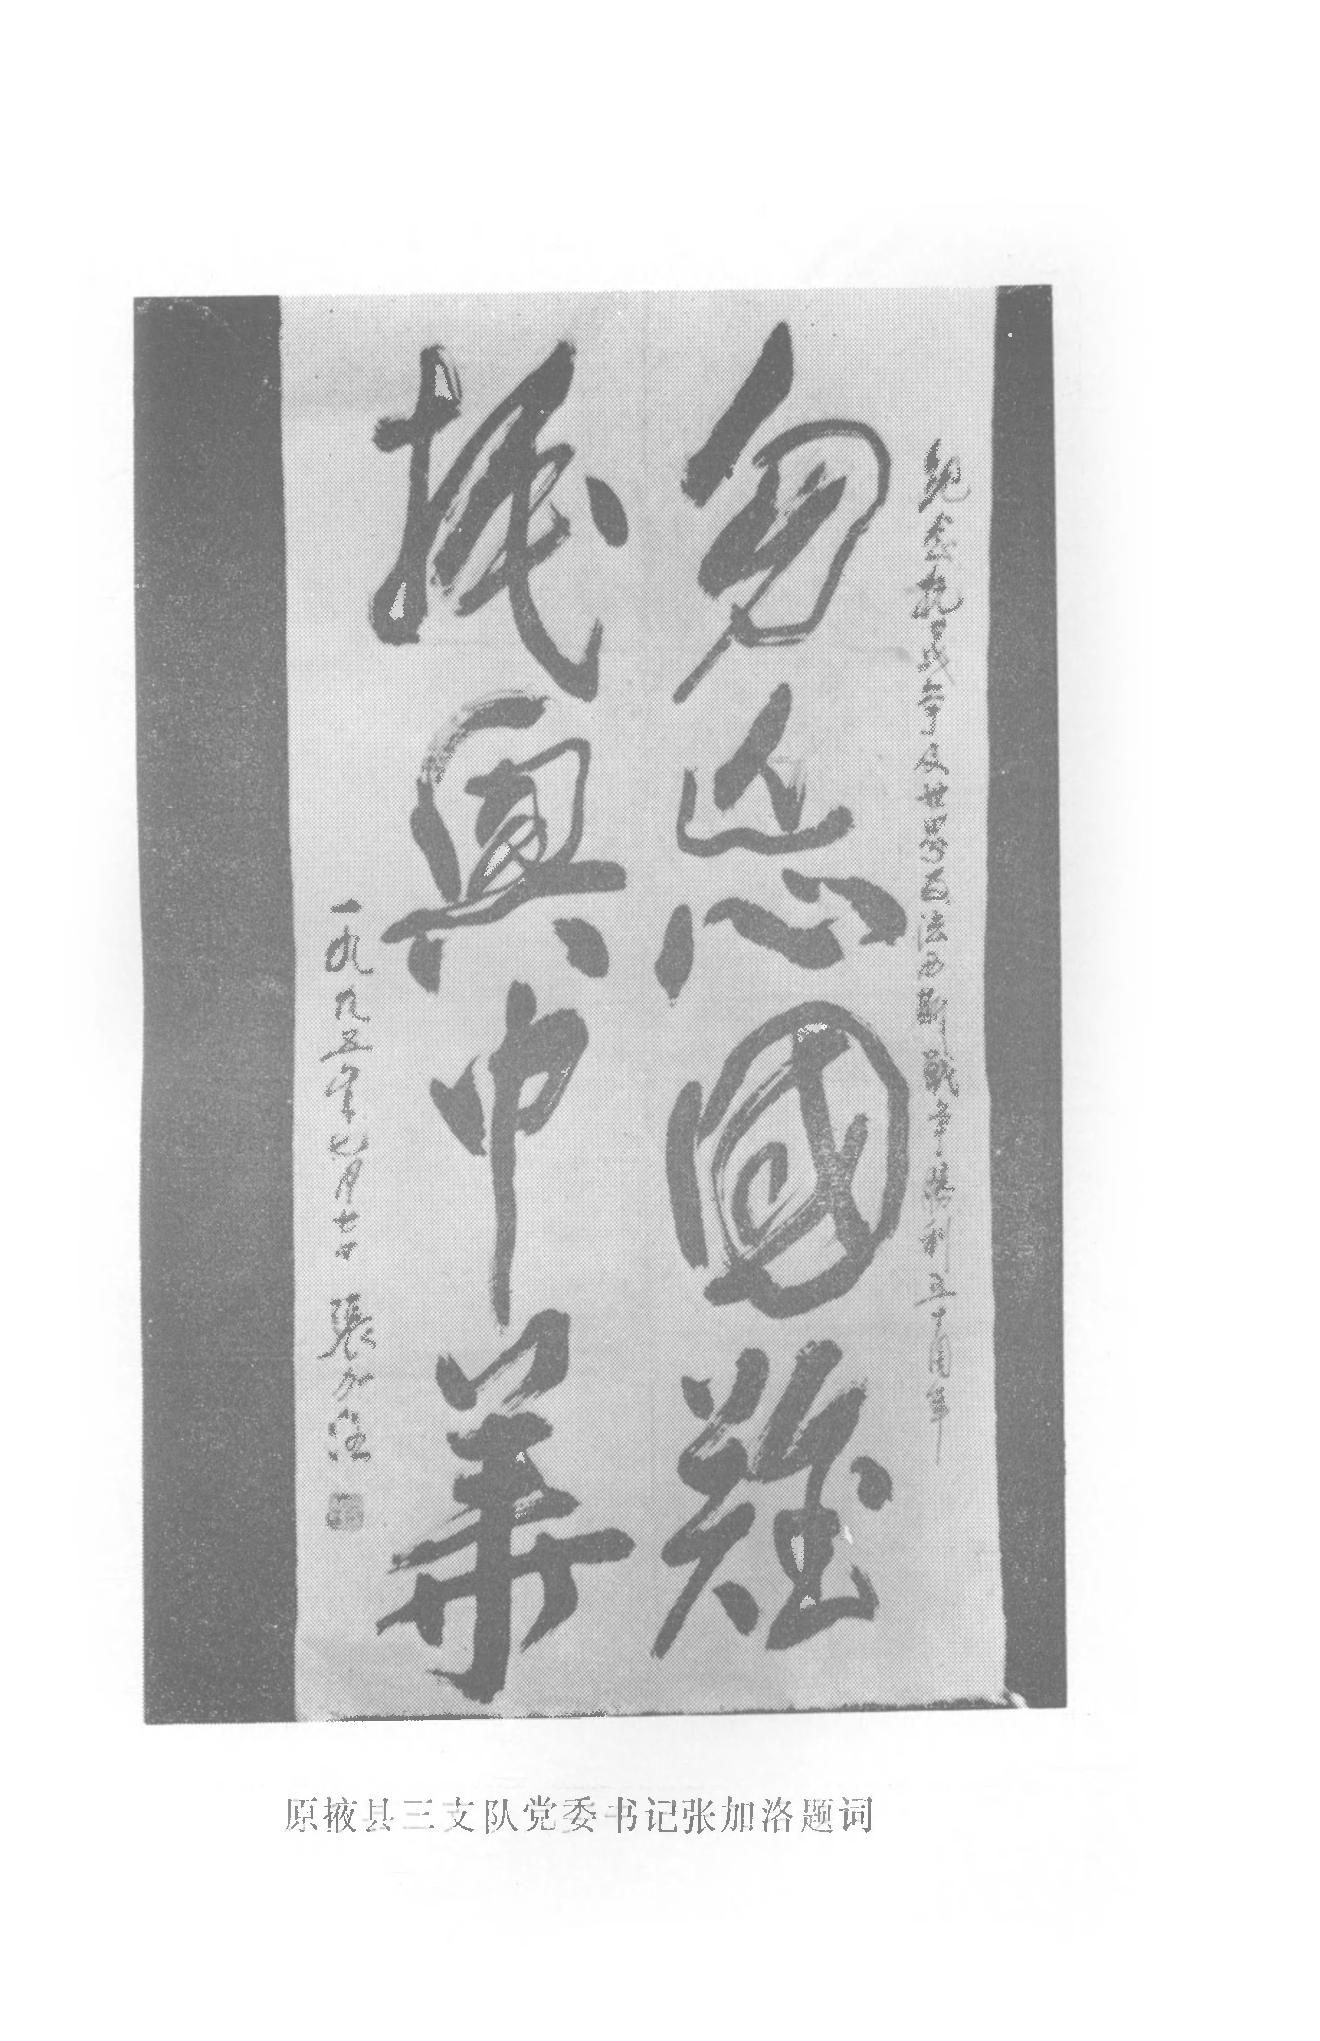 纪念抗日战争及世界反法西斯戰争勝利五十周年
勿忘國難
振興中華
一九九五年七月七日 張加洛
原掖县三支队党委书记张加洛题词